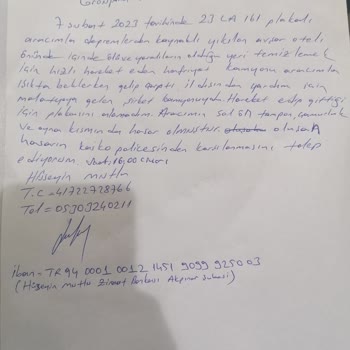 7 subat 2023 tarihinde 23 LA 161 plakalı
aracımla depremlerden kaynaklı yıkılan avşar oteli
önünde içinde ölü ve yaralıların olduğu yeri temizlemek
için hızlı hareket eden hafriyat kamyonu aracımla
Işıkta beklerken gelip çarptı il dışından yardım için
malatyaya gelen şirket kamyonuydu. Hareket edip gittiği
için plakasını alamadım. Aracımın sol ön tampon, çamurluk
ve ayna kısmından hasar olmuştur. oluşan
hasarın kasko poliçesinden karşılanmasını talep
ediyorum. saat: 16,00 civarı
Hüseyin mutlu
T.C = 41722728766
Tel = 05303240211
iban = TR94 0001 0012 1451 9099 9250 03
(Hüseyin Mutlu Ziraat Bankası Akpınar şubesi)